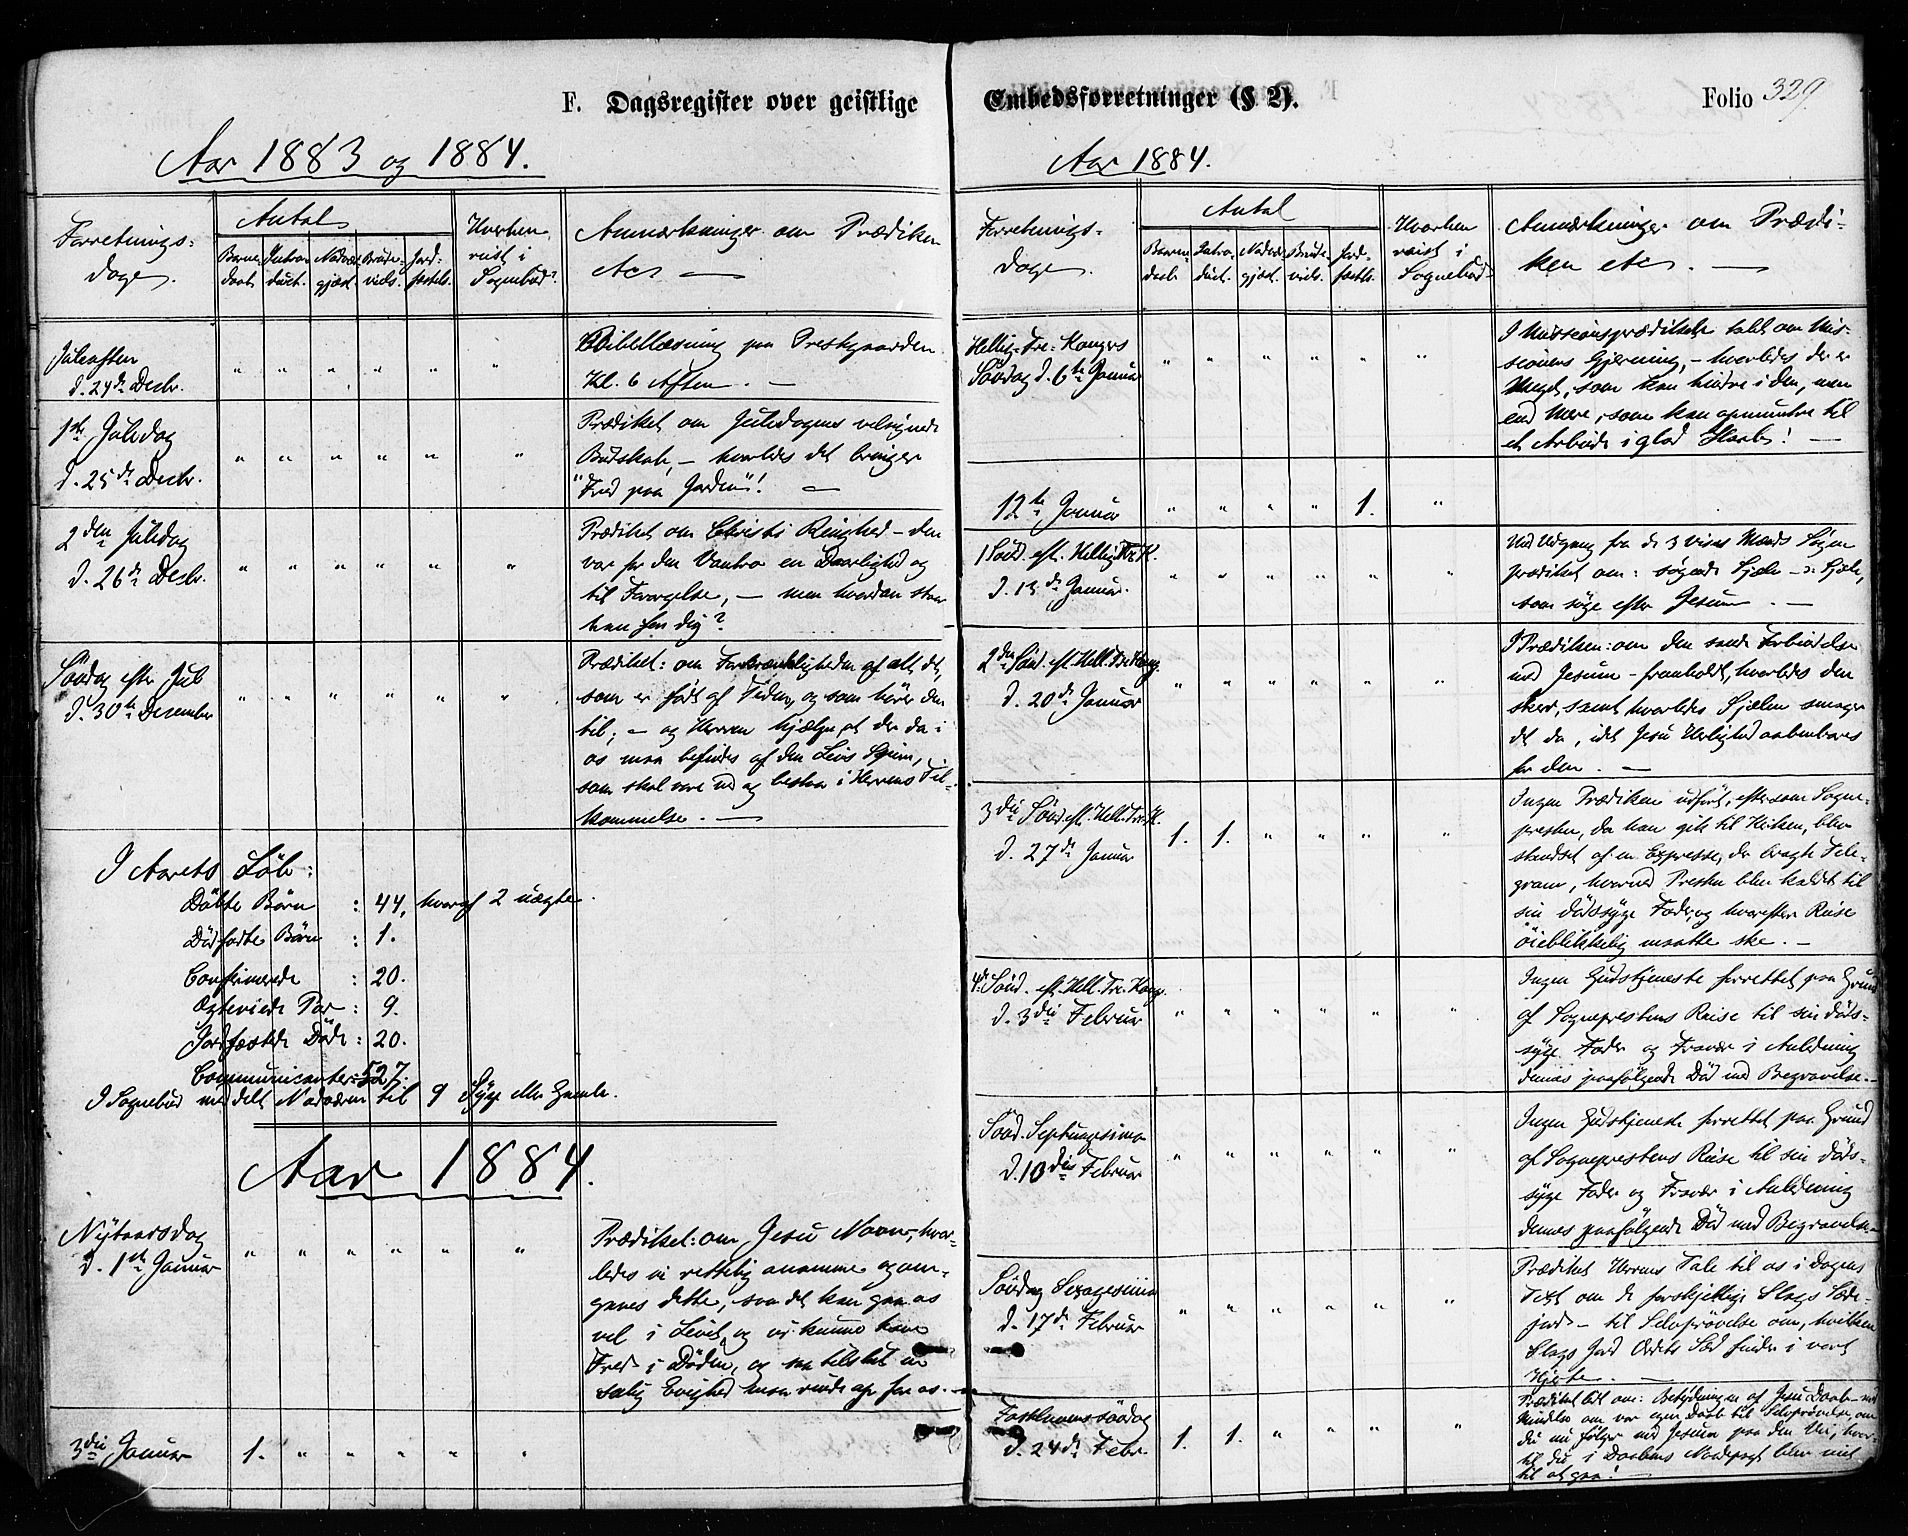 F. Dagsregister over geistlige
Aar 1883 og 1884.
Forretnings-
dage.
Antal
Barne
daab
Intro
duct.
Nadver
gjest.
Brude-
vids.
Jord-
fæstels.
Hvorhen
reist i
Sognebud?
Anmærkninger om Prædiken
etc. —
Juleaften
d. 24de Decbr.
" " " " " "
Bibellæsning paa Prestgaarden
Kl. 6 Aften. —
1ste Juledag
d. 25de Decbr.
" " " " " "
Prædiket om Juledagens velsignede
Budskab, – hvorledes det bringer
"Fred paa Jorden"! —
2den Juledag
d. 26de Decbr.
" " " " " "
Prædiket om Christi Ringhed – den
var for den Vantro en Daarlighed og
til Forargelse, – men hvordan staar
han for dig?
Søndag efter Jul
d. 30te Desember
" " " " " "
Prædiket: om Forkrænkligheden af alt det,
som er født af Tiden, og som hører den
til; – og Herren hjælpe, at der da i
os maa befindes af den Livs Spire,
som skal vare ud og bestaa i Herrens Til-
kommelse. —
I Aarets Løb:
Døbte Børn : 44, hvoraf 2 uægte.
Dødfødte Børn : 1.
Confirmerede : 20.
Ægteviede Par : 9.
Jordfæstede Døde : 20.
Communicanter : 527.
I Sognebud meddelt Nadveren til 9 Syge eller Gamle.
Aar 1884.
Nytaarsdag
d. 1ste Januar
" " " " " "
Prædiket: om Jesu Navn, hvor-
ledes vi rettelig anamme og om-
gaaes dette, saa det kan gaa os
vel i Livet, og vi kunne have
Fred i Døden, og saa tilslut en
salig Evighed maa rinde op for os. —
3die Januar
1. " " " " "
Embedsforretninger (§ 2).
Folio 329
Aar 1884.
Forretnings-
dage.
Antal
Barne-
daab.
Intro-
duct.
Nadver
gjest.
Brude-
vids.
Jord-
fæstls.
Hvorhen
reist i
Sognebud
Anmærkninger om Prædi-
ken etc. —
Hellig-Tre-Kongers
Søndag d. 6te Januar
" " " " " "
I Missionsprædiken talt om Mis-
sionens Gjerning, – hvorledes der er
Meget, som kan hindre i den, men
end Mere, som kan opmuntre til
et Arbeide i glad Haab! —
12te Januar
" " " " 1. "
1 Sønd. eft. Hellig Tre K.
d. 13de Januar.
" " " " " "
Ved Udgang fra de 3 vise Mænds Søgen
prædiket om: søgende Sjæle – ɔ: Sjæle,
som søge efter Jesum. —
2den Sønd. eft. Hell. Tre Kong.
d. 20de Januar
" " " " " "
I Prædiken: om den sande Forbindelse
med Jesum – fremholdt, hvorledes den
skeer, samt hvorledes Sjælen smager
det da, idet Jesu Herlighed aabenbares
for den. —
3die Sønd. eft. Hell. Tre K.
d. 27de Januar
1. 1. " " " "
Ingen Prædiken udført, eftersom Sogne-
presten, da han gik til Kirken, blev
standset af en Expresse, der bragte Tele-
gram, hvorved Presten blev kaldet til
sin dødssyge Fader, og hvorefter Reise
øieblikkelig maatte ske. —
4de Sønd. eft. Hell. Tre Kong.
d. 3die Februar
" " " " " "
Ingen Gudstjeneste forrettet paa Grund
af Sogneprestens Reise til sin døds-
syge Fader og Fravær i Anledning
dennes paafølgende Død med Begravelse. —
Sønd. Septuagesima
d. 10die Februar
" " " " " "
Ingen Gudstjeneste forrettet paa Grund
af Sogneprestens Reise til sin døds-
syge Fader og Fravær i Anledning
dennes paafølgende Død med Begravelse. —
Søndag Sexagesima
d. 17de Februar
" " " " " "
Prædiket Herrens Tale til os i Dagens
Text om de forskjellige Slags Sæde-
jord – til Selvprøvelse om, hvilken
Slags Jord Ordets Sæd finder i vort
Hjerte. —
Fastelavnssøndag
d. 24de Febr.
1. 1. " " " "
Prædiket lidt om: Betydningen af Jesu Daab – med
Mindelse om vor egen Daab til Selvprøvelse, om
du nu følger med Jesum paa den Vei, hvor-
til du i Daabens Naadepagt blev viet
til at gaa! —